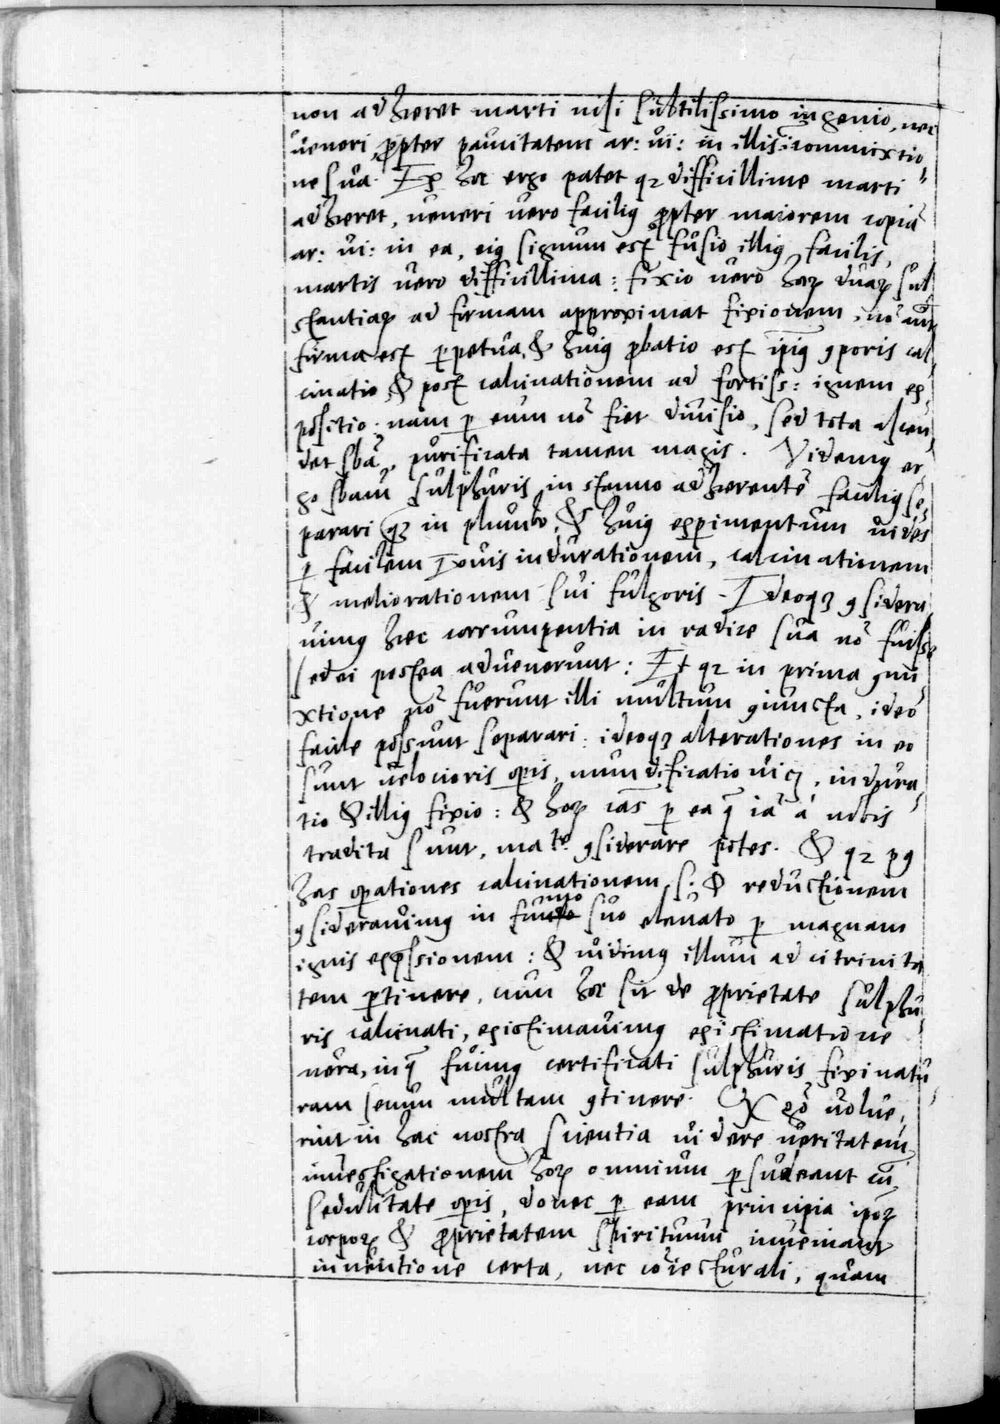 non adhæret marti nisi subtilissimo ingenio, nec
veneri ꝓpter paucitatem ar: vi: in illis com̄ixtio
ne sua. Ex hoc ergo patet qꝛ difficillime marti
adhæret, veneri vero facilius ꝓpter maiorem copiā
ar: vi: in ea, eius signum est fusio illius facilis,
martis vero difficillima: fixio vero haꝝ duaꝝ sub
stantiaꝝ ad firmam approximat fixionem, nō aūt
firma est ꝑpetua, & huius ꝓbatio est ip̄ius ꝯporis cal
cinatio, & post calcinationem ad fortiss: ignem ex
positio. nam ꝑ eum nō fiet divisio, sed tota ascen
det sbā, purificata tamen magis. Videmus er
go sbam sulphuris in stanno adhærentē facilius se
parari qꝫ in plumbo, & huius exꝑimentum vides
ꝑ facilem Iovis indurationem, calcinationem
& meliorationem sui fulgoris. Ideoqꝫ ꝯsidera
vimus hæc corrumpentia in radice sua nō fuisse
sed ei postea advenerunt: Et qꝛ in prima ꝯmi
xtione nō fuerunt illi multum ꝯiuncta, ideo
facile possunt separari: ideoqꝫ alterationes in eo
sunt velocioris oꝑis, mundificatio vicꝫ, indura
tio & illius fixio: & haꝝ cās ꝑ ea q̄ iā a nobis
tradita sunt, ma te ꝯsiderare potes. & qꝛ pꝰ
has oꝑationes calcinationem s: & reductionem
ꝯsideravimus in fumo suo elevato ꝑ magnam
ignis exp̄ssionem: & vidimus illum ad citrinita
tem ꝑtinere, cum hoc sit de ꝓprietate sulphu
ris calcinati, existimavimus existimatione
vera, in q̄ fuimus certificati sulphuris fixi natu
ram secum multam ꝯtinere. Q gō volue
rint in hac nostra scientia videre veritatem,
investigationem hoꝝ omnium ꝑsudeant cū
sedulitate oꝑis, donec ꝑ eam principia ip̄oꝝ
corpoꝝ & ꝓprietatem spirituum inveniant
inventione certa, nec cōiecturali, quam